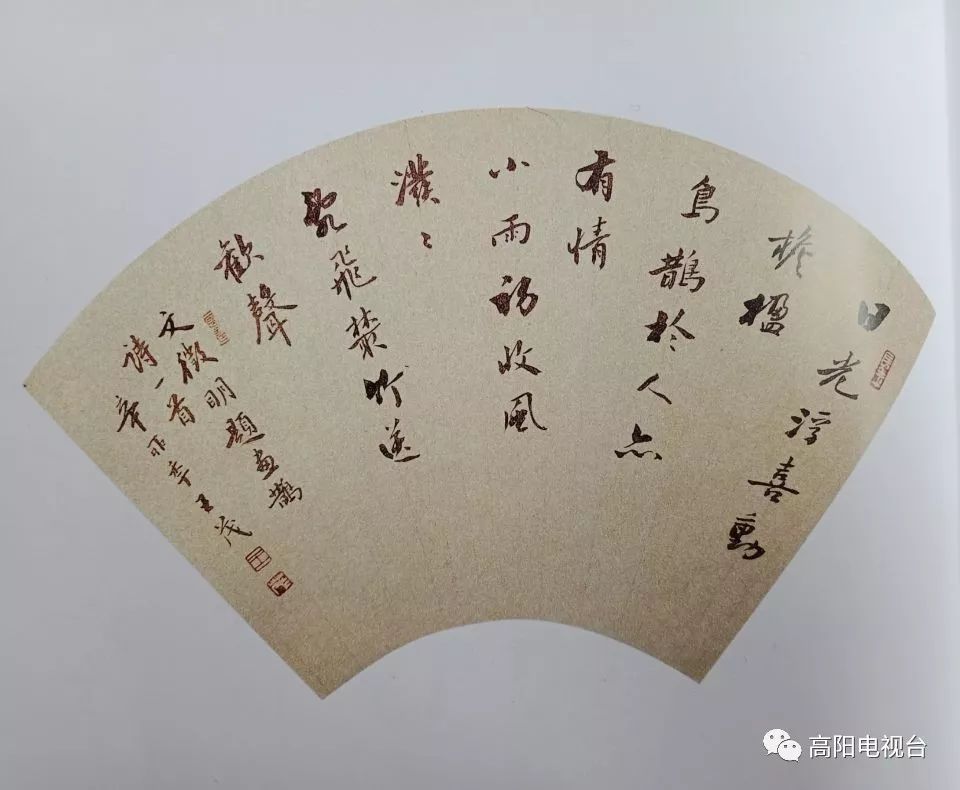 日光浮喜動
檐楹
鳥鵲於人亦
有情
小雨初收風
潑〻
亂飛叢竹送
歡聲
文徵明題畫鵲
詩一首
辛卯秊王茂
高阳电视台